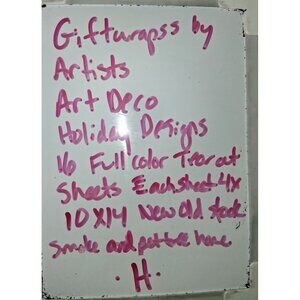 Giftwrapss by
Artists
Art Deco
Holiday Designs
16 Full color Tearout
Sheets Each sheet 4x
10x14 New old stock
smoke and pet free home
·H·